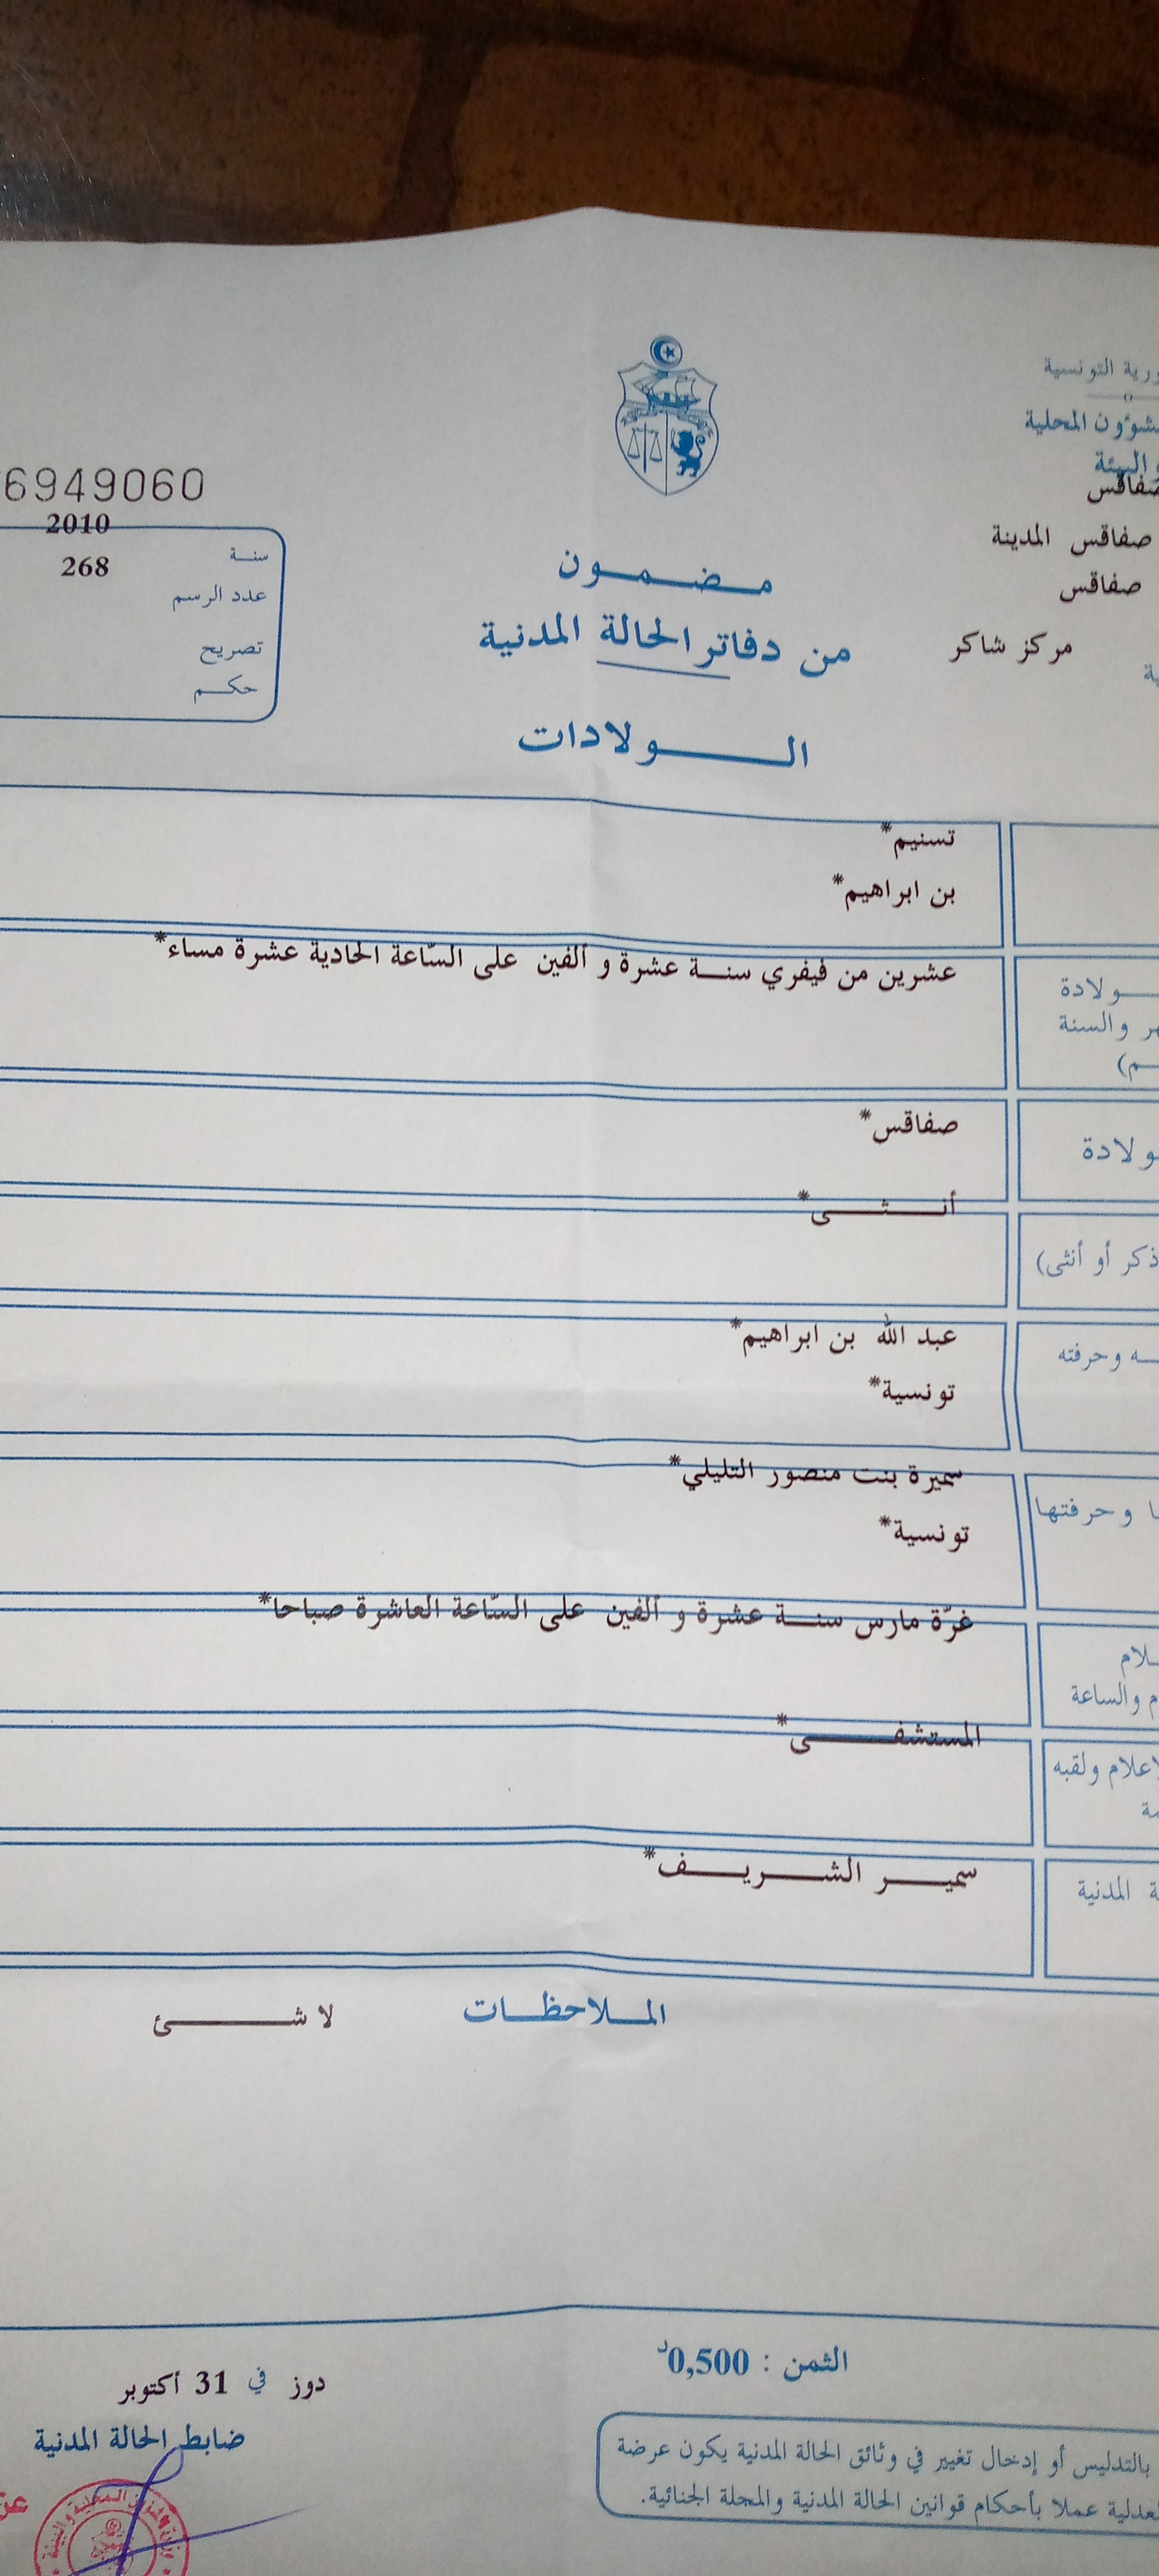 التونسية
المحلية
والبيئة
صفاقس
صفاقس المدينة
صفاقس
مركز شاكر
6949060
2010
سنة
268
عدد الرسم
تصريح
حكم
مضمون
من دفاتر الحالة المدنية
الولادات
تسنيم*
بن ابراهيم*
عشرين من فيفري سنة عشرة و ألفين على السّاعة الحادية عشرة مساء*
والسنة
صفاقس*
أنثى*
ذكر أو أنثى)
عبد الله بن ابراهيم*
وحرفته
تونسية*
سميرة بنت منصور التليلي*
وحرفتها
تونسية*
غرّة مارس سنة عشرة و ألفين على السّاعة العاشرة صباحا*
والساعة
المستشفى*
ولقبه
سمير الشريف*
المدنية
الملاحظات
لا شئ
الثمن : 0,500د
دوز في 31 أكتوبر
ضابط الحالة المدنية
بالتدليس أو إدخال تغيير في وثائق الحالة المدنية يكون عرضة
عملا بأحكام قوانين الحالة المدنية والمجلة الجنائية.